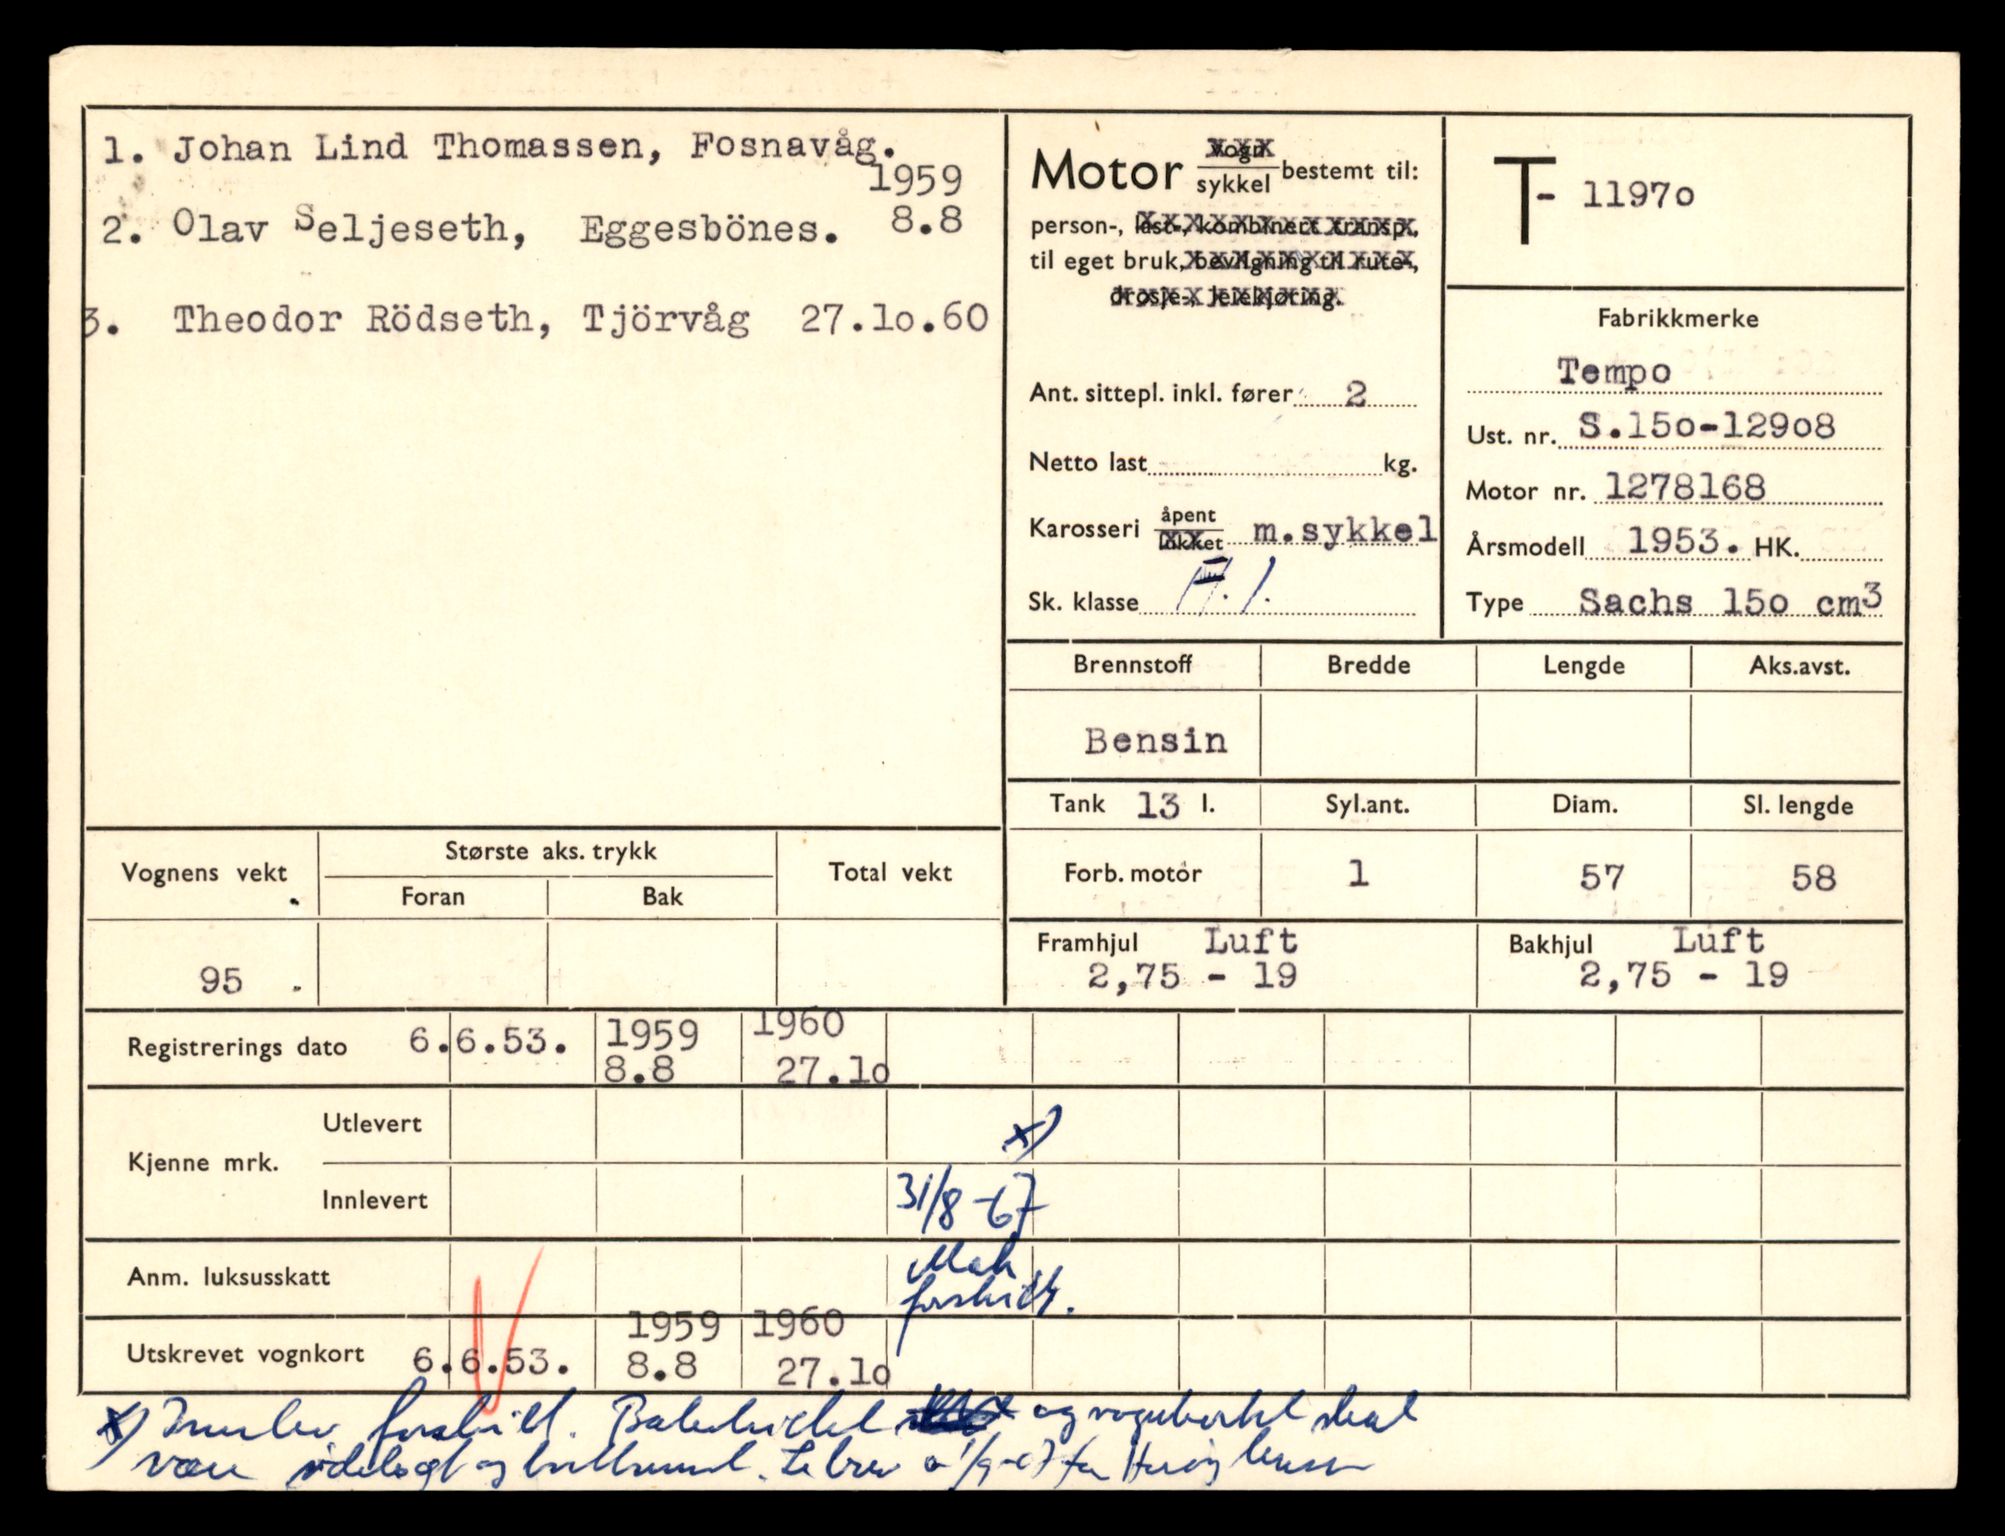 1. Johan Lind Thomassen, Fosnavåg.
1959
2. Olav Seljeseth, Eggesbönes. 8.8
3. Theodor Rödseth, Tjörvåg 27.lo.60
Motor vogn sykkel bestemt til:
person-, last-, kombinert transp.,
til eget bruk, bevilgning til rute-,
drosje-, leiekjøring.
Ant. sittepl. inkl. fører 2
Netto last kg.
Karosseri åpent lukket m.sykkel
Sk. klasse
T- 1197o
Fabrikkmerke
Tempo
Ust. nr. S.15o-129o8
Motor nr. 1278168
Årsmodell 1953. HK.
Type Sachs 15o cm3
Brennstoff Bredde Lengde Aks.avst.
Bensin
Tank 13 l. Syl.ant. Diam. Sl. lengde
Forb. motor 1 57 58
Framhjul Luft Bakhjul Luft
2,75 - 19 2,75 - 19
Vognens vekt Største aks. trykk Total vekt
Foran Bak
95
Registrerings dato 6.6.53. 1959 8.8 1960 27.lo
Kjenne mrk. Utlevert x)
Innlevert 31/8-67
Anm. luksusskatt
forskilt.
Utskrevet vognkort 6.6.53. 1959 8.8 1960 27.lo
x) Innlev forskilt. Bakskiltet og vognkortet skal
være ødelagt og